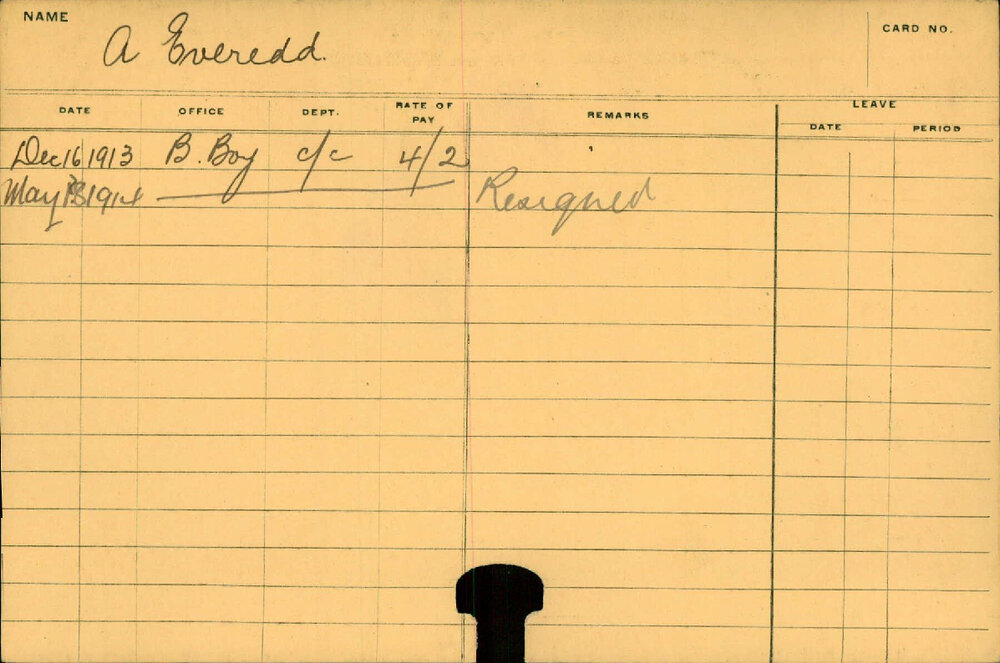 NAME
A Everedd.
CARD NO.
DATE OFFICE DEPT. RATE OF PAY REMARKS LEAVE
DATE PERIOD
Dec 16 1913 B. Boy c/c 4/2
May 1914 Resigned